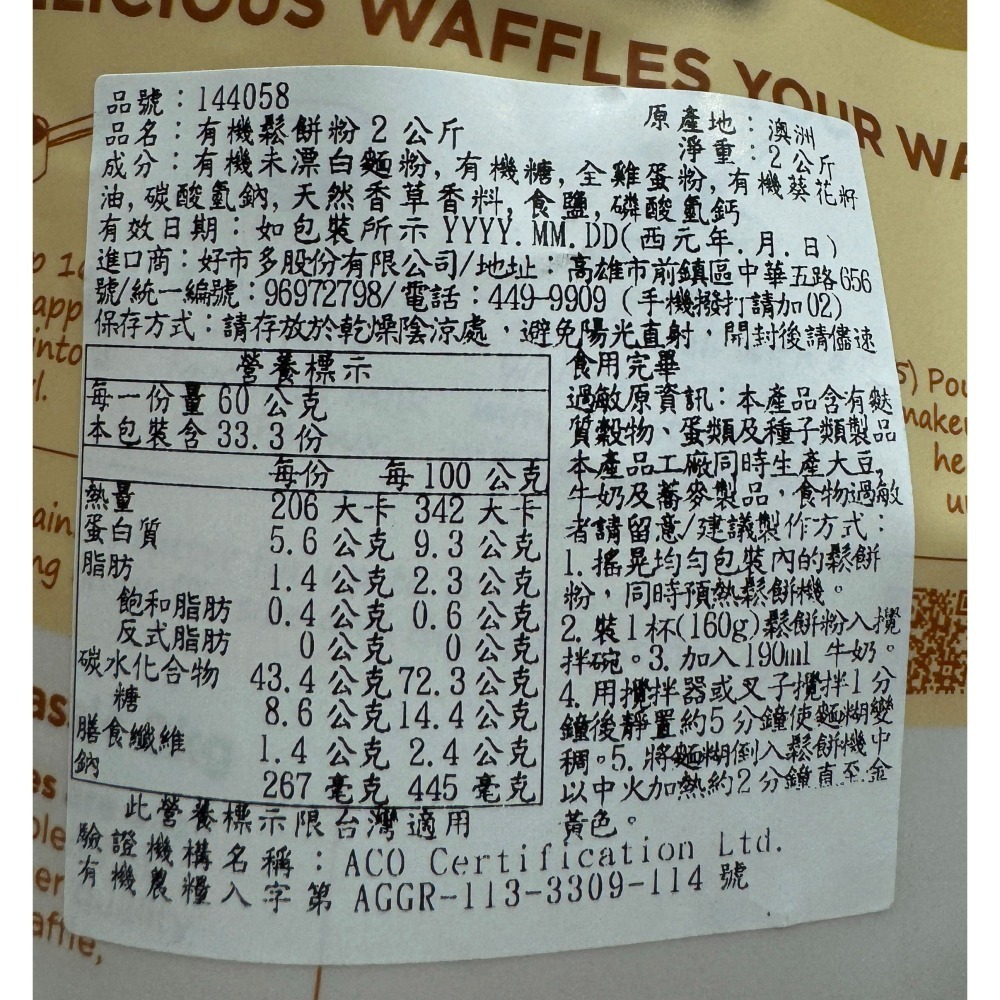 LICIOUS WAFFLES YOUR WA
品號：144058
品名：有機鬆餅粉 2 公斤
原產地：澳洲
淨重：2公斤
成分：有機未漂白麵粉, 有機糖, 全雞蛋粉, 有機葵花籽
油, 碳酸氫鈉, 天然香草香料, 食鹽, 磷酸氫鈣
有效日期：如包裝所示 YYYY. MM. DD(西元年. 月. 日)
進口商：好市多股份有限公司/地址：高雄市前鎮區中華五路656
號/統一編號：96972798/電話：449-9909 (手機撥打請加02)
保存方式：請存放於乾燥陰涼處，避免陽光直射，開封後請儘速
食用完畢
營養標示
每一份量 60 公克
本包裝含 33.3 份
每份 每 100 公克
熱量 206 大卡 342 大卡
蛋白質 5.6 公克 9.3 公克
脂肪 1.4 公克 2.3 公克
飽和脂肪 0.4 公克 0.6 公克
反式脂肪 0 公克 0 公克
碳水化合物 43.4 公克 72.3 公克
糖 8.6 公克 14.4 公克
膳食纖維 1.4 公克 2.4 公克
鈉 267 毫克 445 毫克
此營養標示限台灣適用
過敏原資訊：本產品含有麩
質穀物、蛋類及種子類製品
本產品工廠同時生產大豆,
牛奶及蕎麥製品，食物過敏
者請留意/建議製作方式：
1. 搖晃均勻包裝內的鬆餅
粉，同時預熱鬆餅機。
2. 裝1杯(160g)鬆餅粉入攪
拌碗。3. 加入190ml 牛奶。
4. 用攪拌器或叉子攪拌1分
鐘後靜置約5分鐘使麵糊變
稠。5. 將麵糊倒入鬆餅機中
以中火加熱約2分鐘直至金
黃色。
驗證機構名稱：ACO Certification Ltd.
有機農糧入字第 AGGR-113-3309-114 號